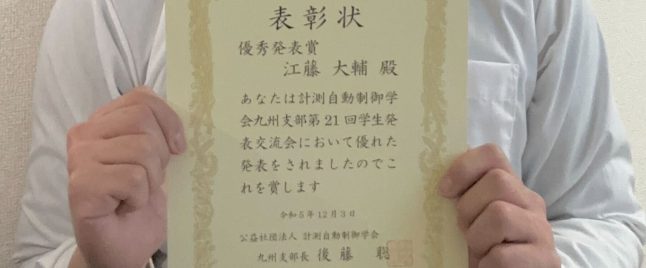 表彰状
優秀発表賞
江藤 大輔 殿
あなたは計測自動制御学
会九州支部第21回学生発
表交流会において優れた
発表をされましたのでこ
れを賞します
令和5年12月3日
公益社団法人 計測自動制御学会
九州支部長 後藤 聡